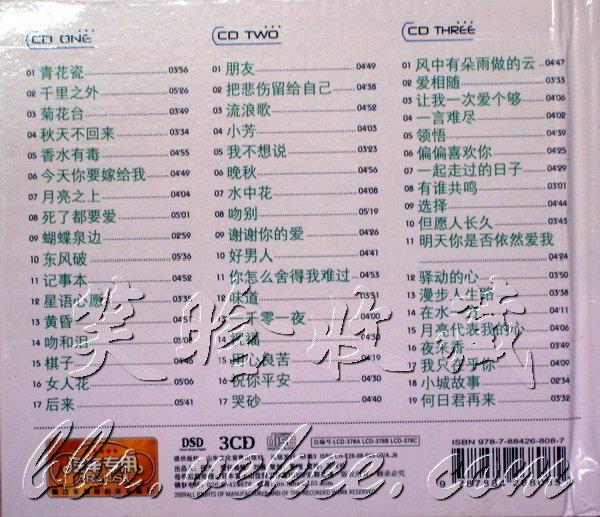 CD ONE
01 青花瓷 03'56
02 千里之外 05'26
03 菊花台 04'49
04 秋天不回来 03'34
05 香水有毒 04'55
06 今天你要嫁给我 04'49
07 月亮之上 04'04
08 死了都要爱 05'01
09 蝴蝶泉边 02'59
10 东风破 05'36
11 记事本 04'52
12 星语心愿
13 黄昏
14 吻和泪
15 棋子
16 女人花 05'41
17 后来 05'41
CD TWO
01 朋友 04'49
02 把悲伤留给自己 04'38
03 流浪歌 04'52
04 小芳 04'03
05 我不想说 05'23
06 晚秋 04'56
07 水中花 04'08
08 吻别 05'19
09 谢谢你的爱 04'26
10 好男人 04'41
11 你怎么舍得我难过 04'53
12 味道 03'51
13 一千零一夜 04'00
14 祝福
15 用心良苦 04'14
16 祝你平安 04'30
17 哭砂 04'40
CD THREE
01 风中有朵雨做的云 04'47
02 爱相随 03'33
03 让我一次爱个够 04'06
04 一言难尽 04'02
05 领悟 04'39
06 偏偏喜欢你 04'25
07 一起走过的日子 04'29
08 有谁共鸣 03'01
09 选择 04'44
10 但愿人长久 03'43
11 明天你是否依然爱我 04'24
12 驿动的心 03'50
13 漫步人生路
14 在水一方
15 月亮代表我的心
16 夜来香
17 我只在乎你 04'09
18 小城故事 02'34
19 何日君再来 03'32
笑晗收藏
汽车专用
CAR MUSIC
DSD
3CD
自编号:LCD-378A LCD-378B LCD-378C
ISBN 978-7-88426-808-7
2009 ALL RIGHTS OF MANUFACTURER AND OF THE RECORDED WORK RESERVED